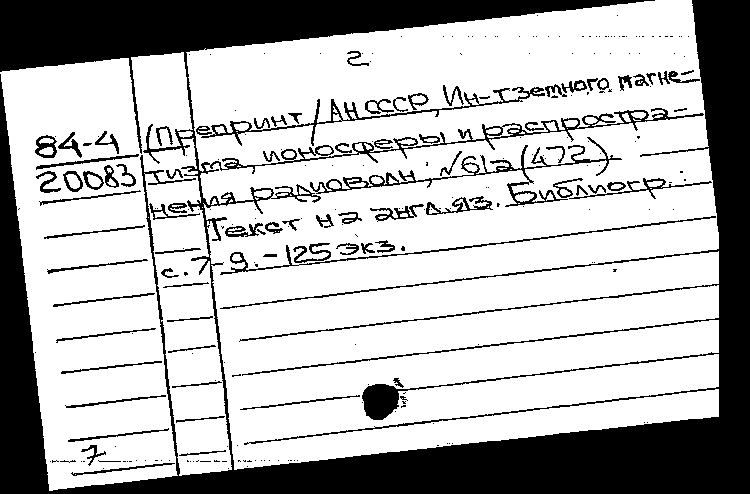 2
84-4 (Препринт/АН СССР, Ин-т земного магне-
20083 тизма, ионосферы и распростра-
нения радиоволн; №61а(472).
Текст на англ.яз. Библиогр.:
с.7-9.-125 экз.
7